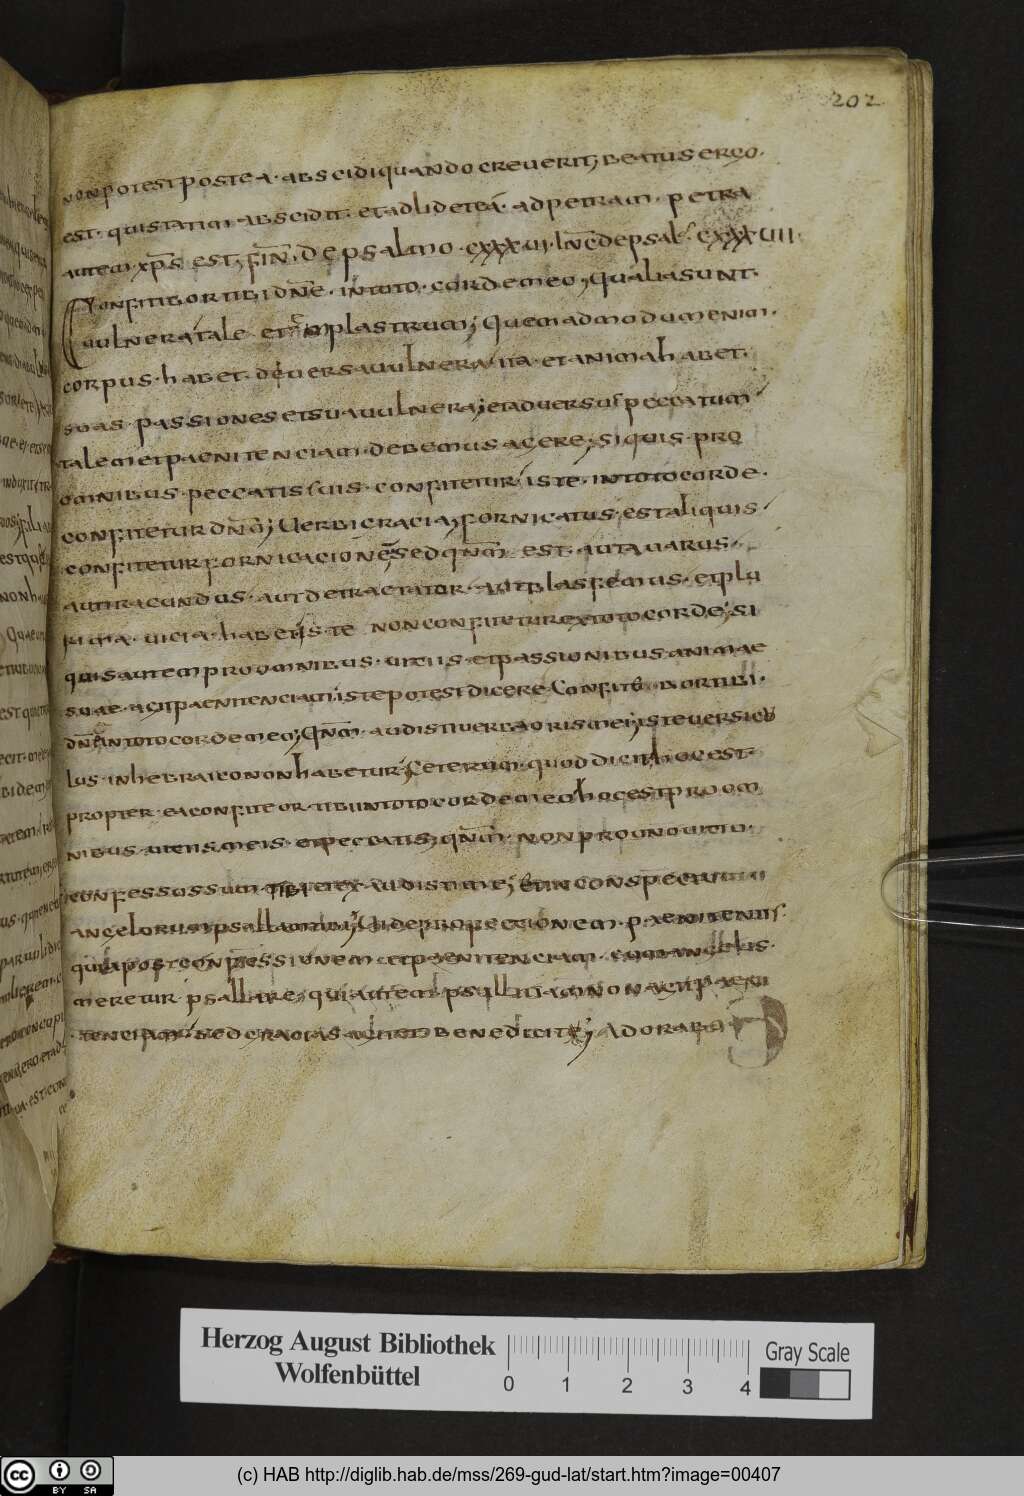 202
non potest postea · abscidi quando creverit; beatus ergo ·
est · qui statim abscidit · et adlidet eā · ad petram · petra
autem xp̄s est, fin̄ · de psalmo · cxxxvi · inc̄ de psal̄ · cxxxvii ·
Confitibor tibi dn̄e · in toto · corde meo; qualia sunt
vulnera tale et emplastrum; quemadmodum enim ·
corpus · habet · diversa vulnera ita · et anima habet ·
suas passiones et sua vulnera; et adversus peccatum
talem et paenitenciam · debemus agere; si quis · pro
omnibus · peccatis suis · confitetur iste · in toto corde ·
confitetur dn̄m; verbi gracia, fornicatus · est aliquis
confitetur fornicacionē sed qn̄m est · aut avarus ·
aut iracundus · aut detractator · aut blasfemus · et plu
rima · vicia · habet iste non confitetur ex toto corde; si
quis autem pro omnibus · vitiis · et passionibus animae
suae · agit paenitenciam iste potest dicere · Confitebor tibi ·
dn̄e in toto corde meo; Qn̄m · audisti verba oris mei; iste versicu
lus · in hebraico non habetur; Ceterum · quod dicit, hoc est
propter · ea confiteor · tibi in toto corde meo hoc est pro om
nibus · vitiis meis · et peccatis; qn̄m · non pro uno vitio ·
confessus sum tibi et ex audisti me; et in conspectu
angelorum psallam tibi; Vide profeccionem · paenitentis ·
quia post confessionem · et paenitenciam · cum angelis ·
meretur psallere; qui autem psallit iam non agit paeni
tenciam · sed gracias agit et benedicit; Adorabo
Herzog August Bibliothek
Wolfenbüttel
0 1 2 3 4
Gray Scale
cc BY SA
(c) HAB http://diglib.hab.de/mss/269-gud-lat/start.htm?image=00407